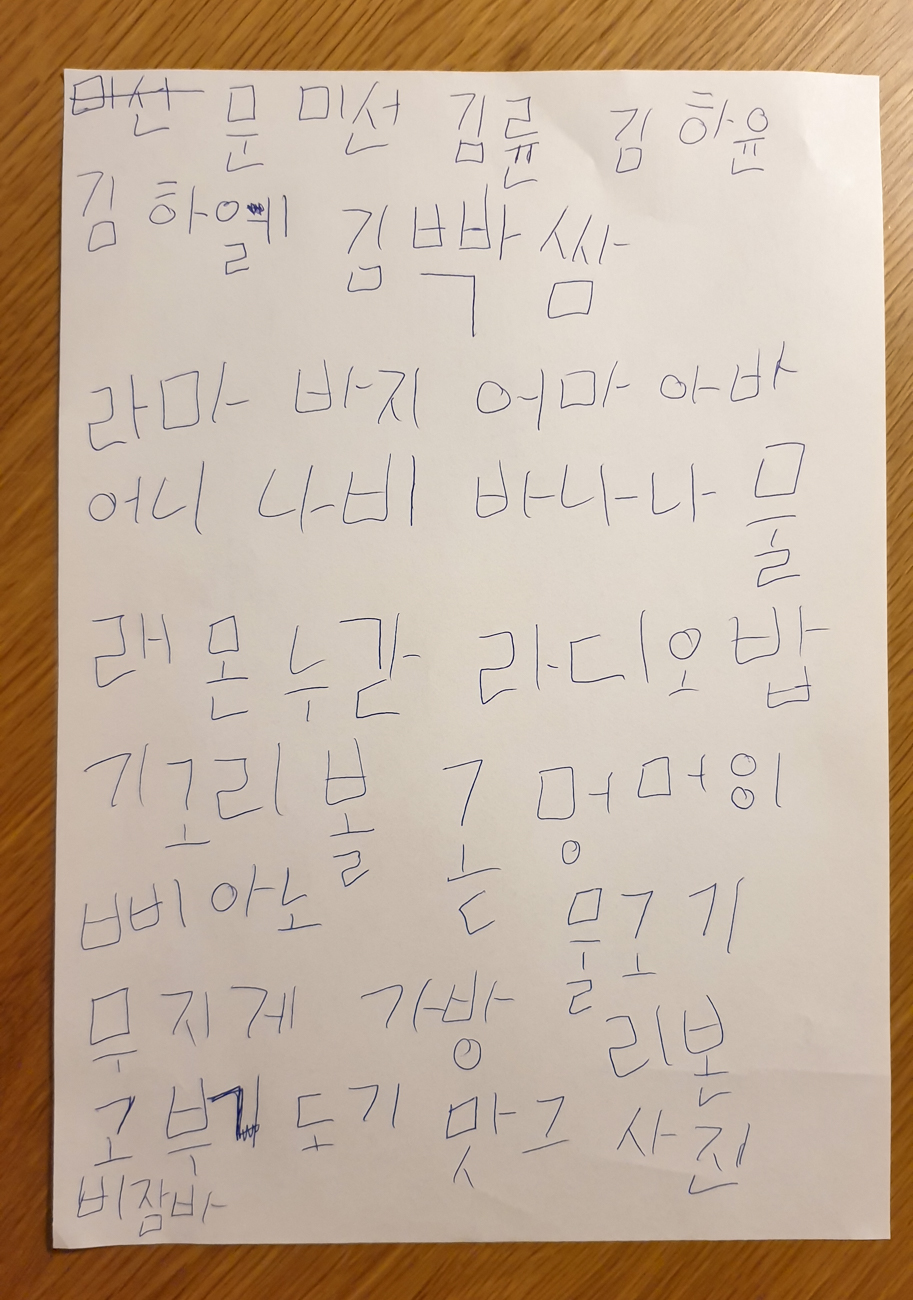 미선 문 미선 김륜 김 하윤
김 하옐 김 빡쌈
라마 바지 어마 아바
어니 나비 바나나 물
래몬 누갈 라디오 밥
기고리 볼 곧 멍머잉
삐아노 물고기
무지게 가방 리본
고부기 도기 맛그 사진
비잠바